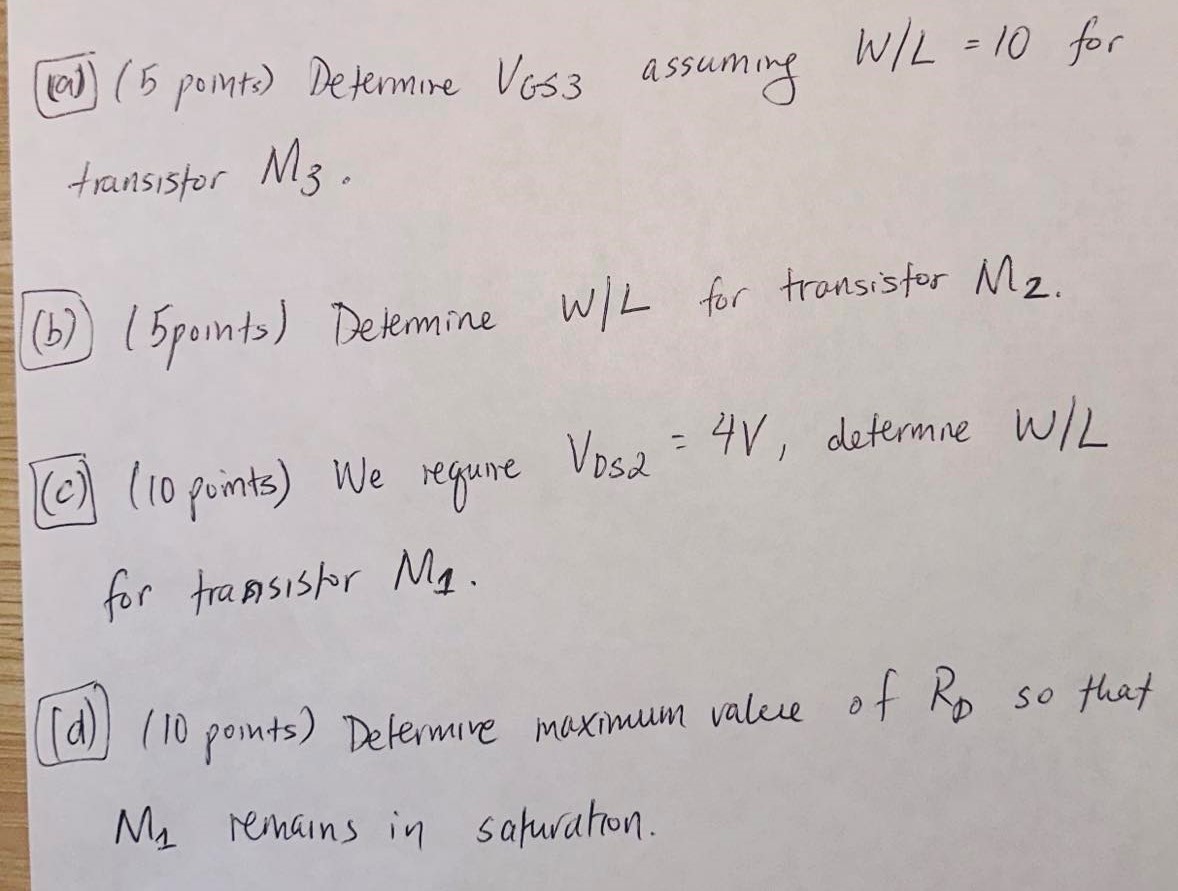 (a) (5 points) Determine VGS3 assuming W/L = 10 for
transistor M3.
(b) (5points) Determine W/L for transistor M2.
(c) (10 points) We require VDS2 = 4V, determine W/L
for transistor M1.
(d) (10 points) Determine maximum value of RD so that
M1 remains in saturation.